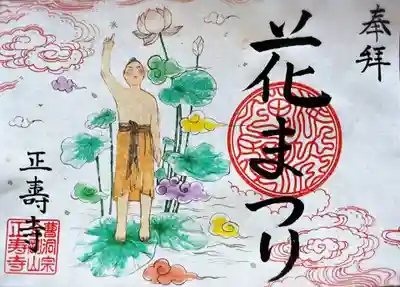 奉拝
花まつり
正壽寺
曹洞宗
山
正壽寺